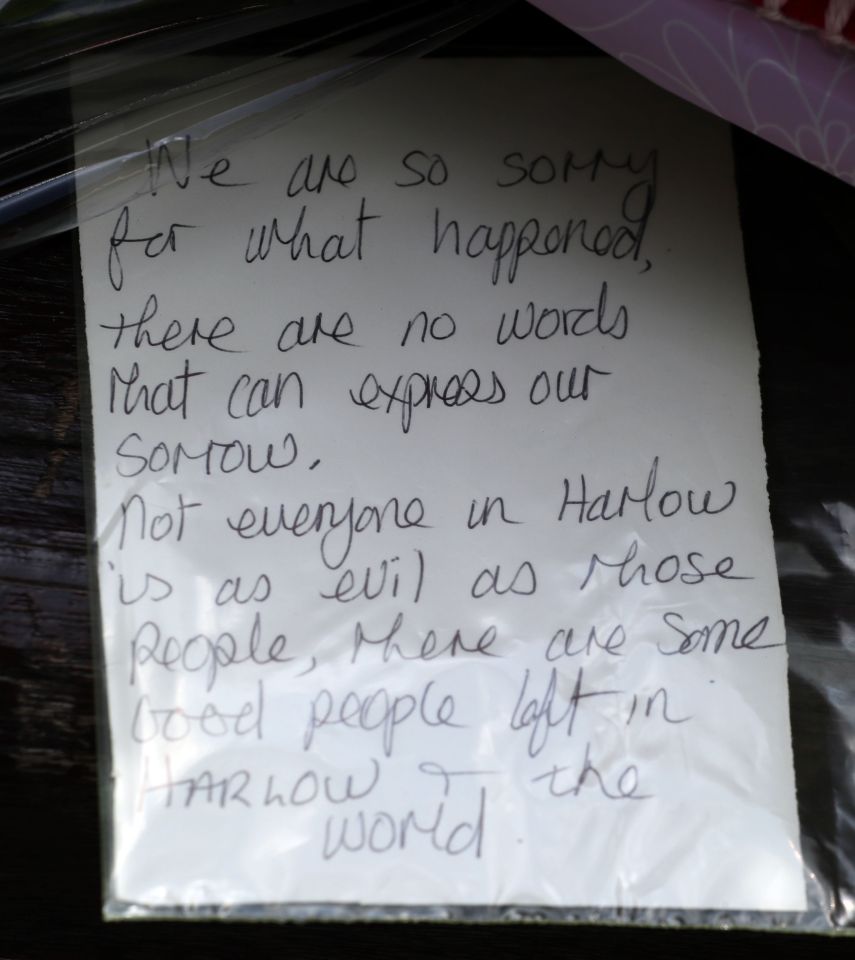 We are so sorry
for what happened,
there are no words
that can express our
sorrow.
Not everyone in Harlow
is as evil as those
people, there are some
Good people left in
HARLOW & the
world.